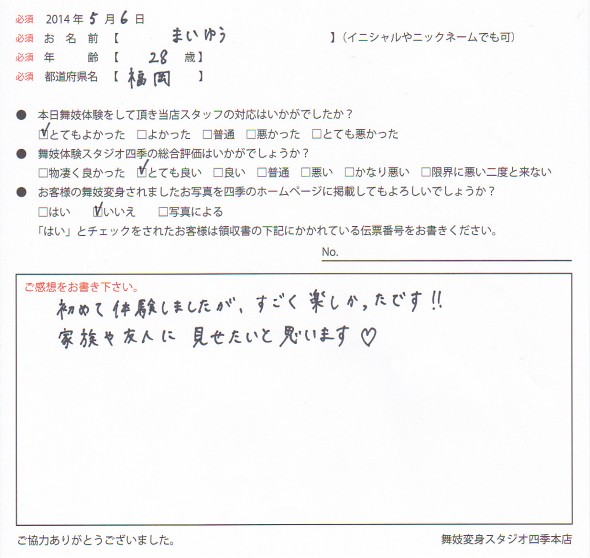 必須 2014年 5 月 6 日
必須 お 名 前 【 まいゆう 】(イニシャルやニックネームでも可)
必須 年 齢 【 28 歳】
必須 都道府県名 【 福岡 】
● 本日舞妓体験をして頂き当店スタッフの対応はいかがでしたか?
☑とてもよかった □よかった □普通 □悪かった □とても悪かった
● 舞妓体験スタジオ四季の総合評価はいかがでしょうか?
□物凄く良かった ☑とても良い □良い □普通 □悪い □かなり悪い □限界に悪い二度と来ない
● お客様の舞妓変身されましたお写真を四季のホームページに掲載してもよろしいでしょうか?
□はい ☑いいえ □写真による
「はい」とチェックをされたお客様は領収書の下記にかかれている伝票番号をお書きください。
No.
ご感想をお書き下さい。
初めて体験しましたが、すごく楽しかったです!!
家族や友人に 見せたいと思います♡
ご協力ありがとうございました。 舞妓変身スタジオ四季本店